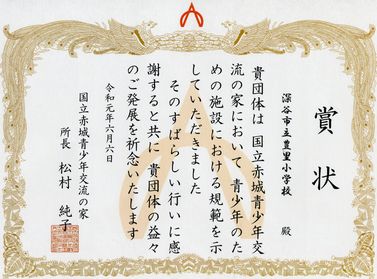 賞状
深谷市立豊里小学校 殿
貴団体は 国立赤城青少年交
流の家において 青少年のた
めの施設における規範を示
していただきました
そのすばらしい行いに感
謝すると共に 貴団体の益々
のご発展を祈念いたします
令和元年六月六日
国立赤城青少年交流の家
所長 松村 純子